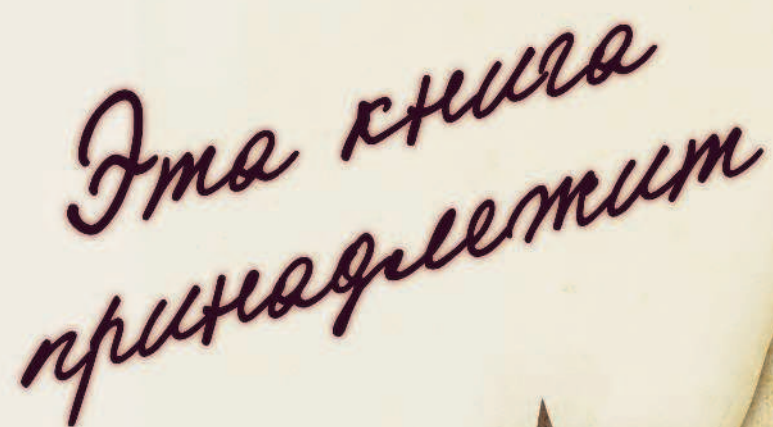 Эта книга
принадлежит